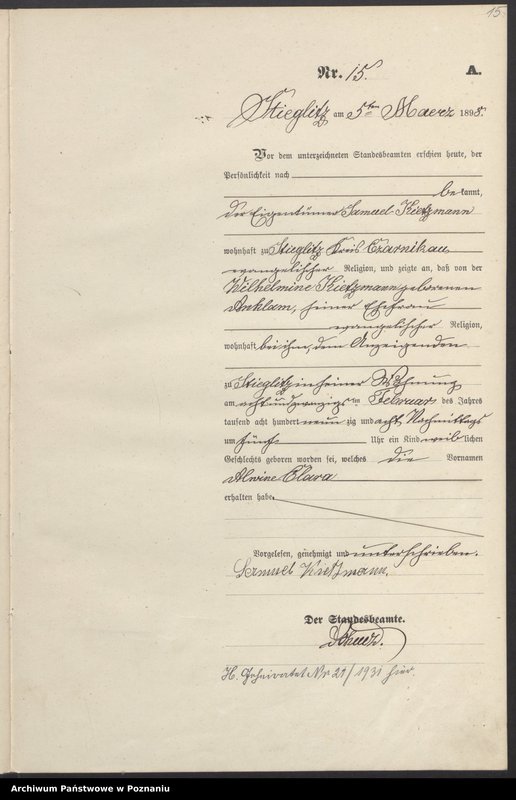 15.
Nr. 15.
A.
Stieglitz am 5ten Maerz 1898.
Vor dem unterzeichneten Standesbeamten erschien heute, der
Persönlichkeit nach
bekannt,
der Eigentümer Samuel Kietzmann
wohnhaft zu Stieglitz Kreis Czarnikau
evangelischer Religion, und zeigte an, daß von der
Wilhelmine Kietzmann geborenen
Anklam, seiner Ehefrau
evangelischer Religion,
wohnhaft bei ihm, dem Anzeigenden
zu Stieglitz in seiner Wohnung
am acht und zwanzigs ten Februar des Jahres
tausend acht hundert neun zig und acht Nachmittags
um fünf Uhr ein Kind weib lichen
Geschlechts geboren worden sei, welches die Vornamen
Alwine Clara
erhalten habe.
Vorgelesen, genehmigt und unterschrieben.
Samuel Kietzmann.
Der Standesbeamte.
H. Geheiratet Nr 21/1931 hier.
Archiwum Państwowe w Poznaniu